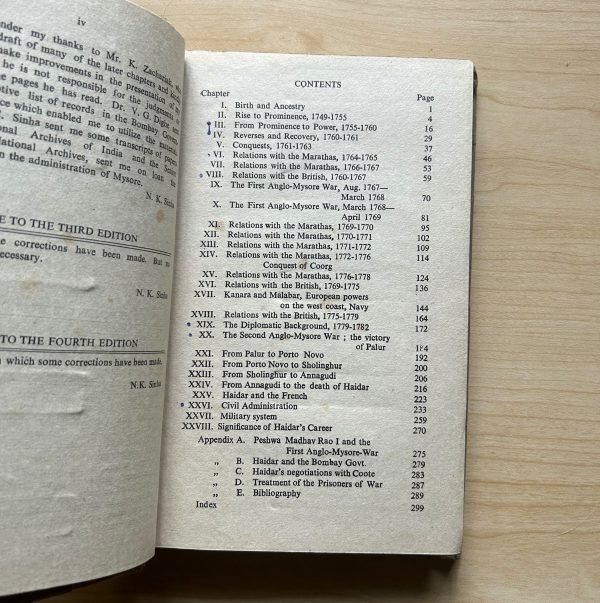 iv
nder my thanks to Mr. K. Zachariah, who
draft of many of the later chapters and
make improvements in the presentation of
he is not responsible for the judgments
e pages he has read. Dr. V. G. Dighe sent
ptive list of records in the Bombay Govern-
ce which enabled me to utilize the
. Sinha sent me some transcripts of papers
onal Archives of India and the
National Archives, sent me on loan the
n the administration of Mysore.
N. K. Sinha
E TO THE THIRD EDITION
e corrections have been made. But no
ecessary.
N. K. Sinha
TO THE FOURTH EDITION
n which some corrections have been made.
N.K. Sinha
CONTENTS
Chapter Page
I. Birth and Ancestry 1
II. Rise to Prominence, 1749-1755 4
III. From Prominence to Power, 1755-1760 16
IV. Reverses and Recovery, 1760-1761 29
V. Conquests, 1761-1763 37
VI. Relations with the Marathas, 1764-1765 46
VII. Relations with the Marathas, 1766-1767 53
VIII. Relations with the British, 1760-1767 59
IX. The First Anglo-Mysore War, Aug. 1767—
March 1768 70
X. The First Anglo-Mysore War, March 1768—
April 1769 81
XI. Relations with the Marathas, 1769-1770 95
XII. Relations with the Marathas, 1770-1771 102
XIII. Relations with the Marathas, 1771-1772 109
XIV. Relations with the Marathas, 1772-1776 114
Conquest of Coorg
XV. Relations with the Marathas, 1776-1778 124
XVI. Relations with the British, 1769-1775 136
XVII. Kanara and Malabar, European powers
on the west coast, Navy 144
XVIII. Relations with the British, 1775-1779 164
XIX. The Diplomatic Background, 1779-1782 172
XX. The Second Anglo-Mysore War ; the victory
of Palur 184
XXI. From Palur to Porto Novo 192
XXII. From Porto Novo to Sholinghur 200
XXIII. From Sholinghur to Annagudi 206
XXIV. From Annagudi to the death of Haidar 216
XXV. Haidar and the French 223
XXVI. Civil Administration 233
XXVII. Military system 259
XXVIII. Significance of Haidar's Career 270
Appendix A. Peshwa Madhav Rao I and the
First Anglo-Mysore-War 275
„ B. Haidar and the Bombay Govt. 279
„ C. Haidar's negotiations with Coote 283
„ D. Treatment of the Prisoners of War 287
„ E. Bibliography 289
Index 299